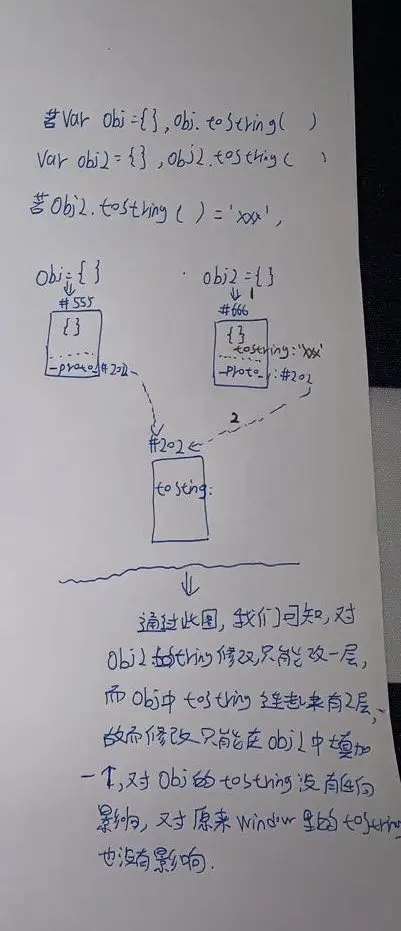 若Var obj={},obj.tostring( )
Var obj2={},obj2.tostring( )
若Obj2.tostring( )='xxx',
Obj={ }
obj2={ }
1
#555
#666
{ }
{ }
tostring:'xxx'
-proto_#202
-proto_:#202
2
#202
tosting:
通过此图,我们可知,对
Obj2 tostring修改只能改一层,
而Obj中tostring连起来有2层,
故而修改只能在obj2中填加
一个,对Obj的tostring没有任何
影响,对原来window里的tostring
也没有影响.